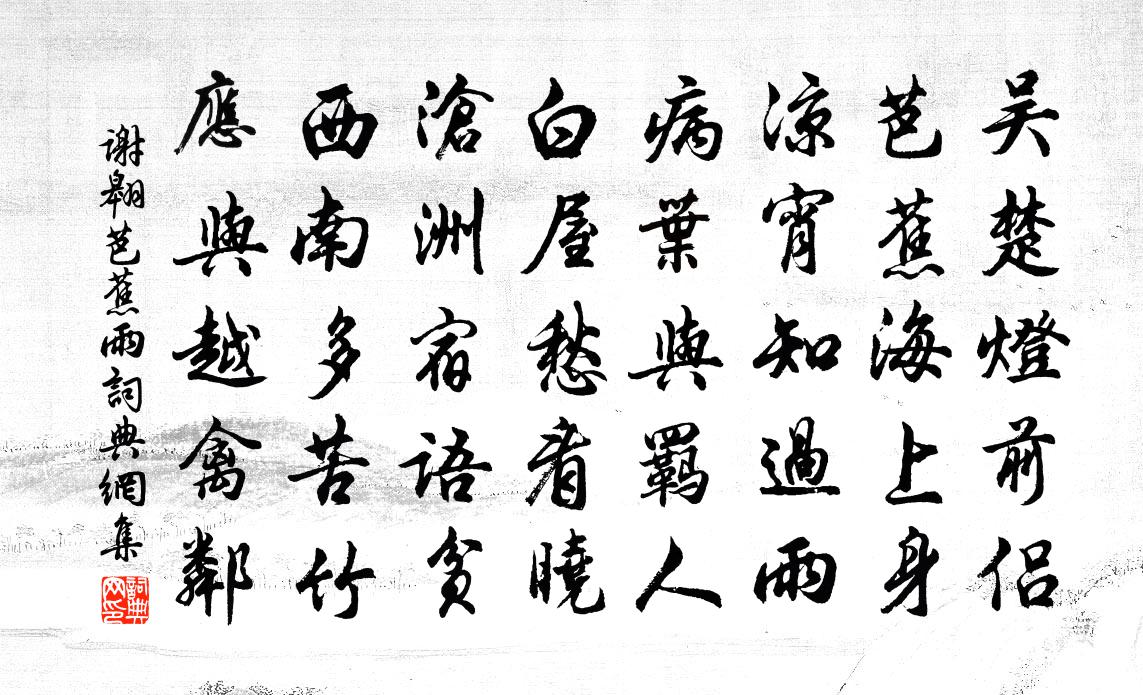 吴楚燈前侶
芭蕉海上身
涼宵知過雨
病葉與羈人
白屋愁看曉
滄洲宿語貧
西南多苦竹
應與越禽鄰
謝翱芭蕉雨詞典網集
詞典网印